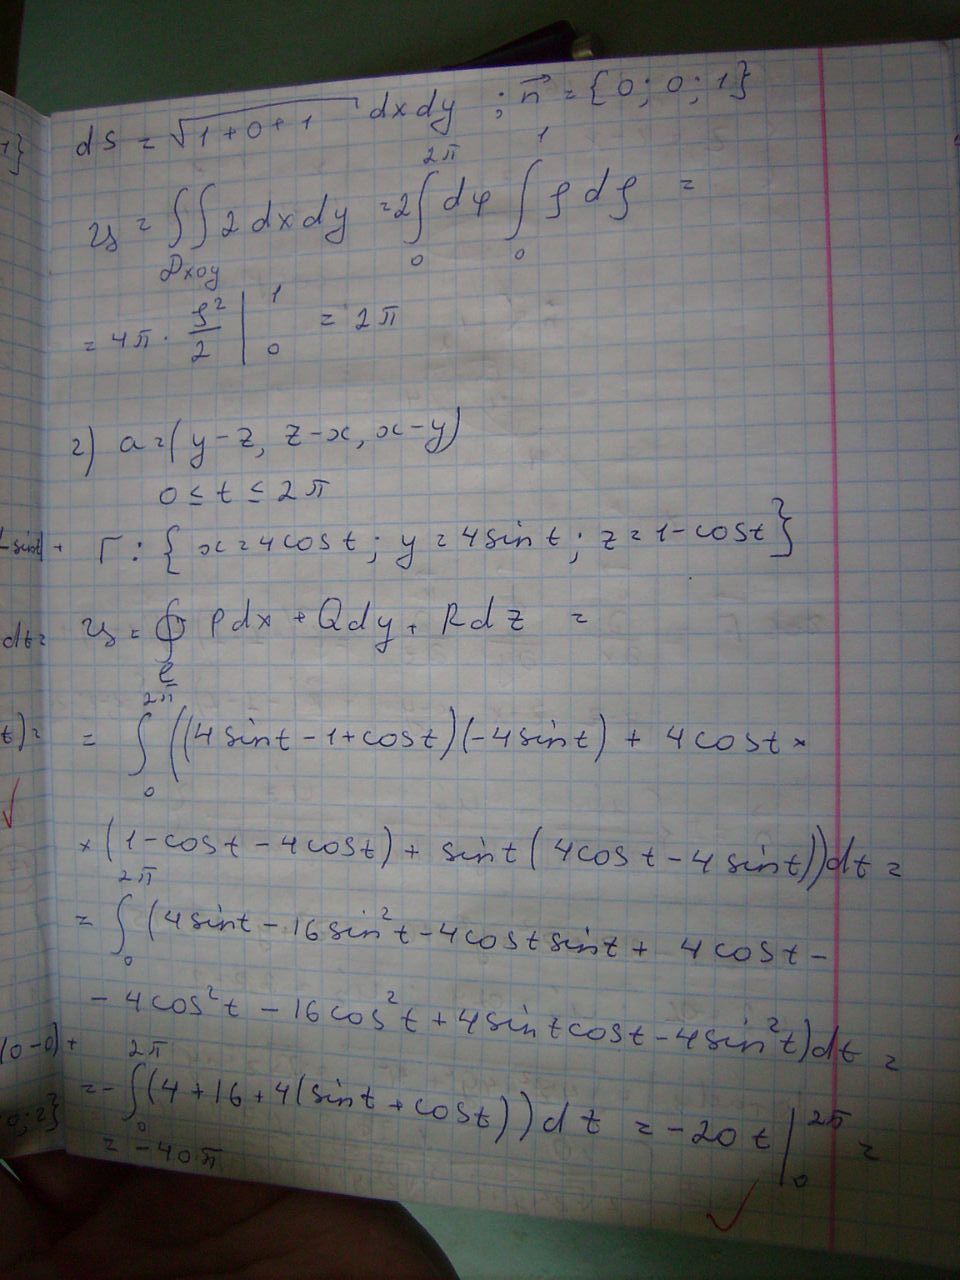 ds = √(1+0+1) dxdy ; n⃗ = {0; 0; 1}
И = ∬_{Dxoy} 2 dxdy = 2 ∫_0^{2π} dφ ∫_0^1 ρ dρ =
= 4π · ρ²/2 |_0^1 = 2π
2) a = (y-z, z-x, x-y)
0 ≤ t ≤ 2π
Г: { x = 4cost; y = 4sint; z = 1-cost }
И = ∮_ℓ Pdx + Qdy + Rdz =
= ∫_0^{2π} ((4sint - 1 + cost)(-4sint) + 4cost ×
× (1-cost - 4cost) + sint (4cost - 4sint)) dt =
= ∫_0^{2π} (4sint - 16sin²t - 4costsint + 4cost -
- 4cos²t - 16cos²t + 4sintcost - 4sin²t) dt =
= - ∫_0^{2π} (4+16+4(sint+cost)) dt = -20t |_0^{2π} =
= -40π
sint) +
dt =
t) =
(0-0) +
0; 2}